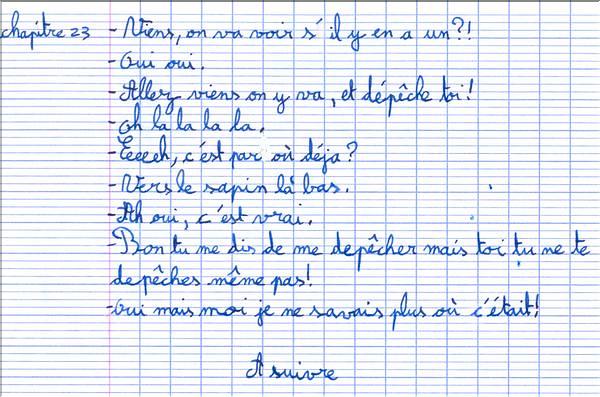 chapitre 23 - Viens, on va voir s'il y en a un?!
- Oui oui.
- Allez viens on y va, et dépêche toi!
- Oh la la la la.
- Eeeeh, c'est par où déja?
- Vers le sapin là bas.
- Ah oui, c'est vrai.
- Bon tu me dis de me depêcher mais toi tu ne te
depêches même pas!
- Oui mais moi je ne savais plus où c'était!
A suivre